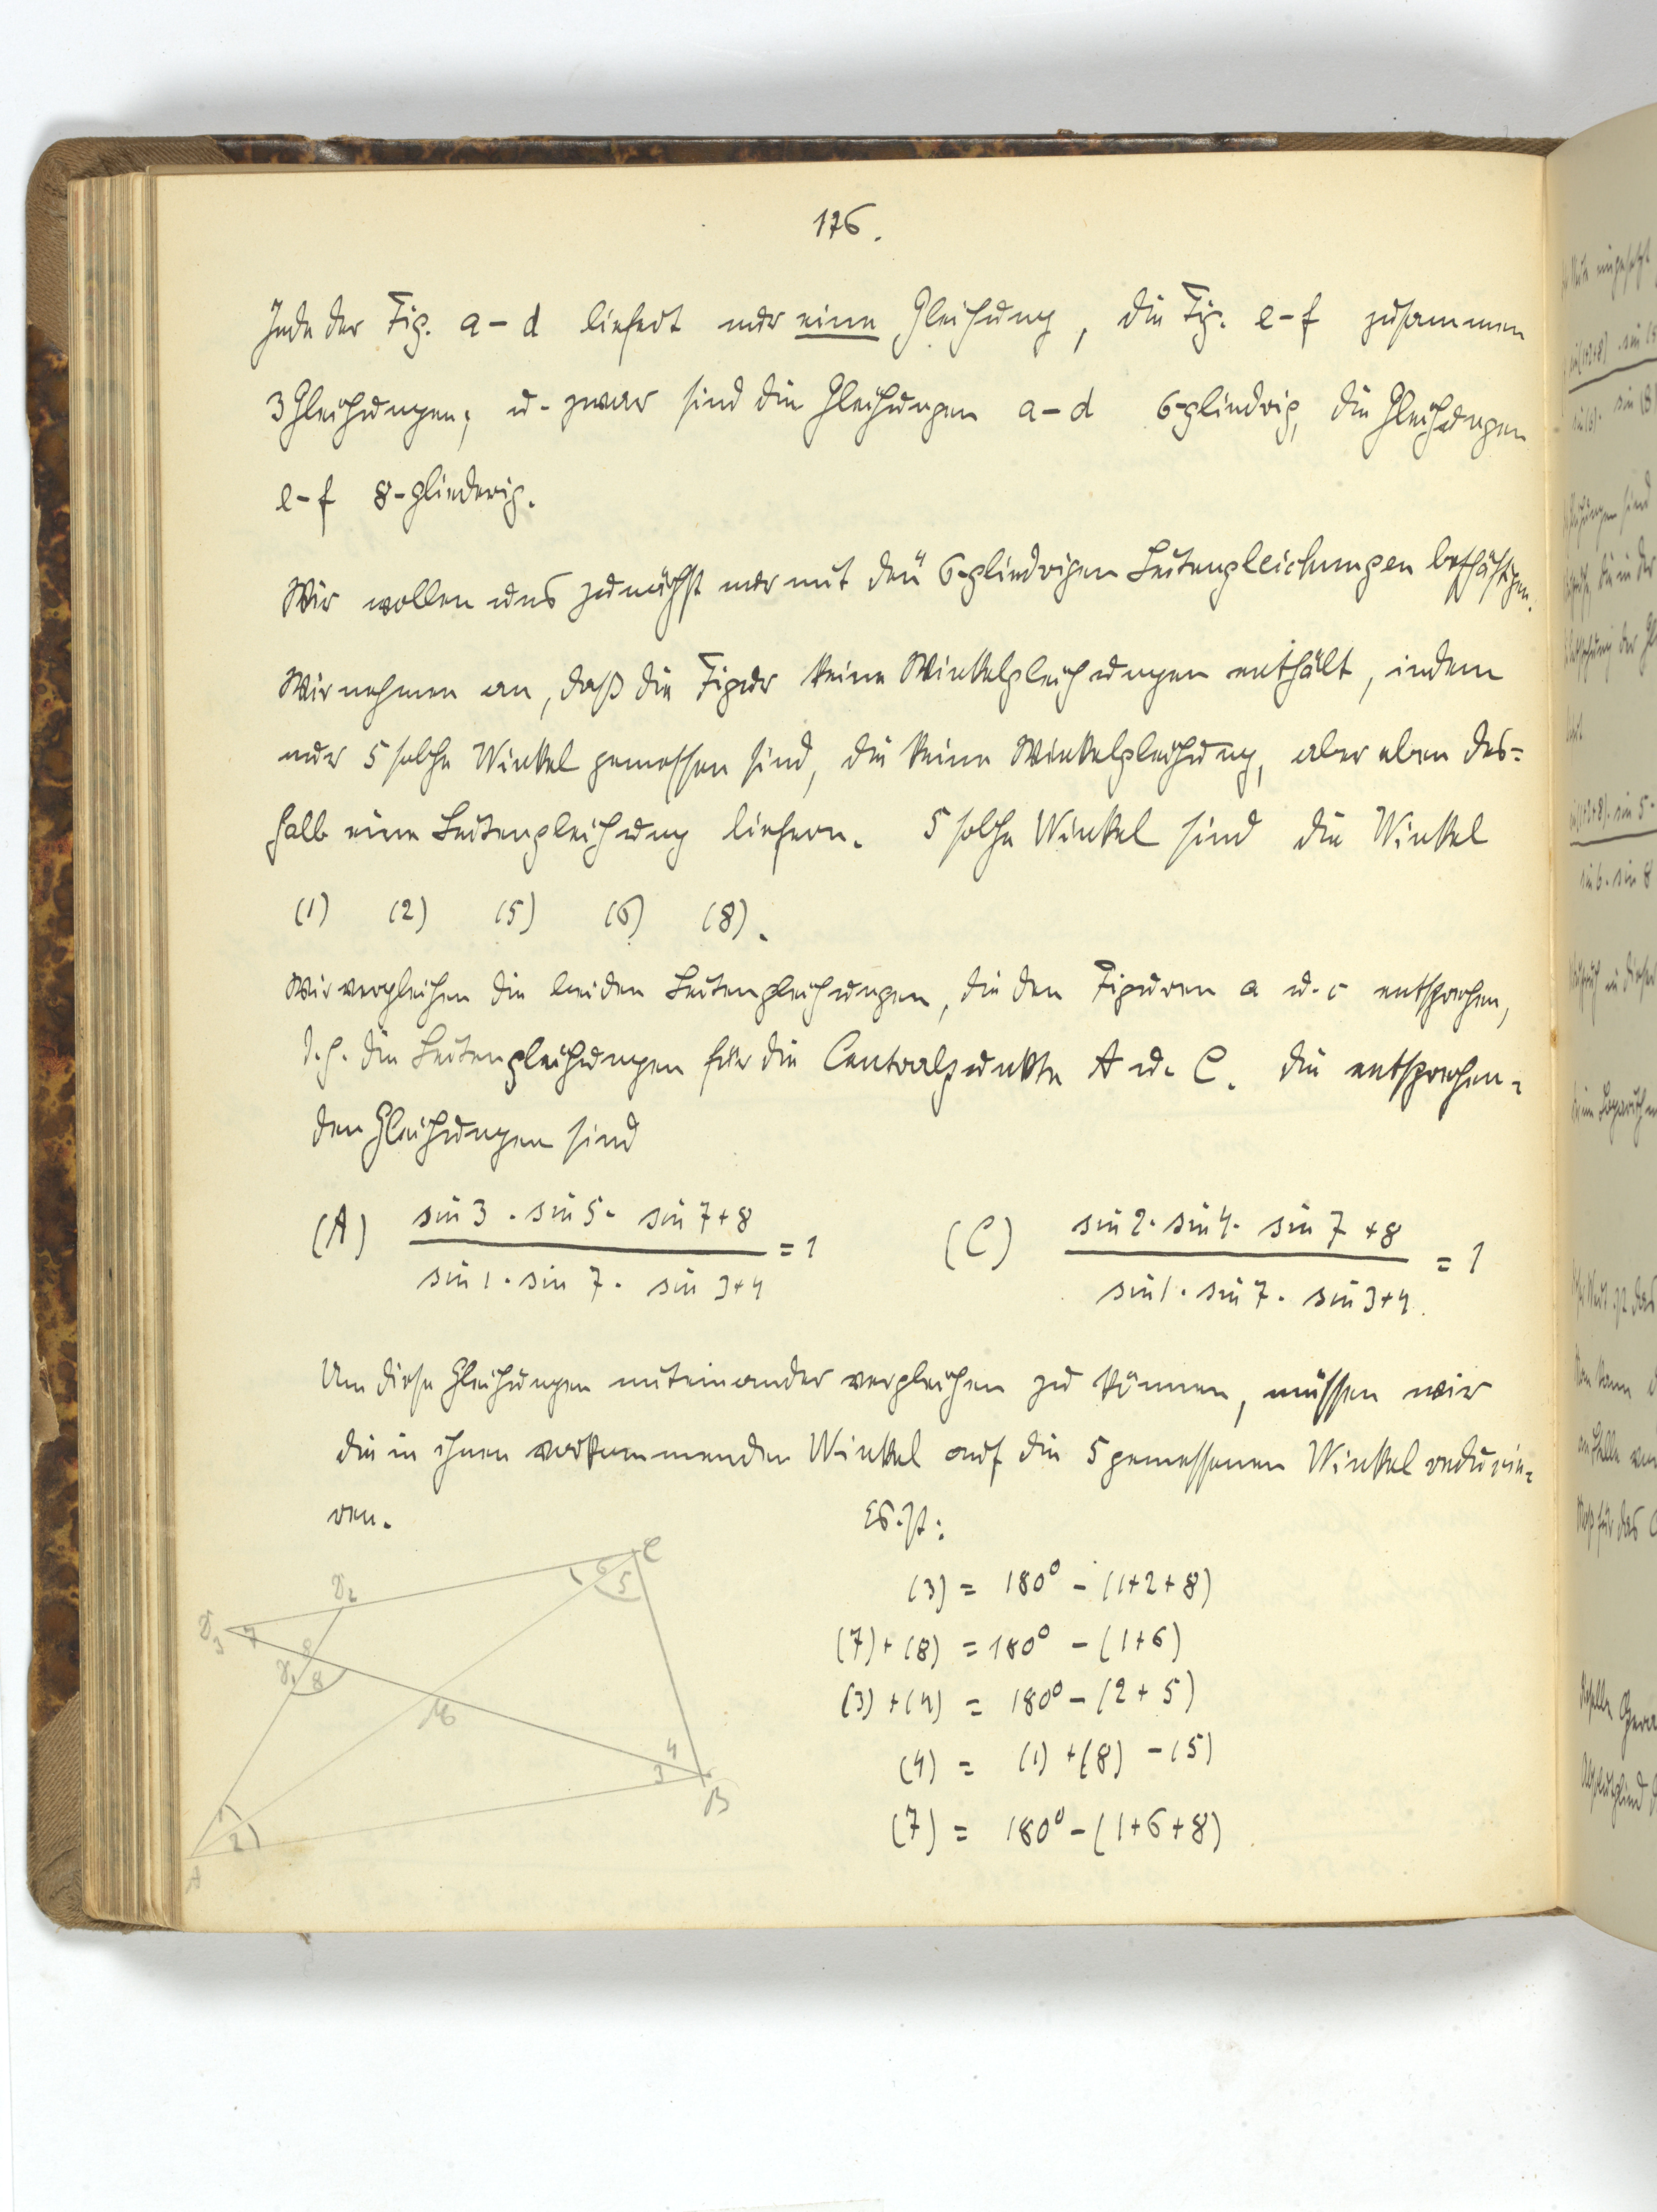 176.
Jede der Fig. a-d liefert nur eine Gleichung, die Fig. e-f zusammen
3 Gleichungen; u. zwar sind die Gleichungen a-d 6-gliedrig, die Gleichungen
e-f 8-gliederig.
Wir wollen uns zunächst nur mit den 6-gliedrigen Seitengleichungen beschäftigen.
Wir nehmen an, daß die Figur keine Winkelgleichungen enthält, indem
nur 5 solche Winkel gemessen sind, die keine Winkelgleichung, aber eben des=
halb eine Seitengleichung liefern. 5 solche Winkel sind die Winkel
(1) (2) (5) (6) (8).
Wir vergleichen die beiden Seitengleichungen, die den Figuren a u. c entsprechen,
d.h. die Seitengleichungen für die Centralpunkte A u. C. Die entsprechen=
den Gleichungen sind
(A) sin 3 . sin 5 . sin 7+8 / sin 1 . sin 7 . sin 3+4 = 1
(C) sin 2 . sin 4 . sin 7+8 / sin 1 . sin 7 . sin 3+4 = 1
Um diese Gleichungen miteinander vergleichen zu können, müssen wir
die in ihnen vorkommenden Winkel auf die 5 gemessenen Winkel reducie=
ren. Es ist:
(3) = 180° - (1+2+8)
(7) + (8) = 180° - (1+6)
(3) + (4) = 180° - (2+5)
(4) = (1) + (8) - (5)
(7) = 180° - (1+6+8)
C
6
5
7
8
4
3
B
1
2
A